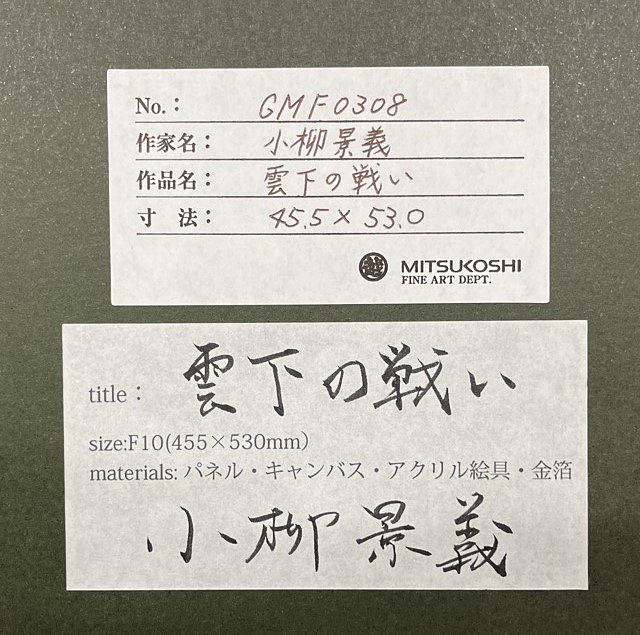 No.： GMF0308
作家名： 小柳景義
作品名： 雲下の戦い
寸　法： 45.5×53.0
越 MITSUKOSHI
FINE ART DEPT.
title： 雲下の戦い
size:F10(455×530mm)
materials: パネル・キャンバス・アクリル絵具・金箔
小柳景義